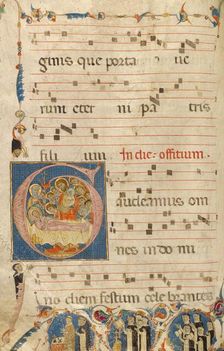 ginis que porta ue
rum eter ni pa tris
fili um In die. offitium.
Gaudeamus om
nes in do mi
no diem festum cele brantes